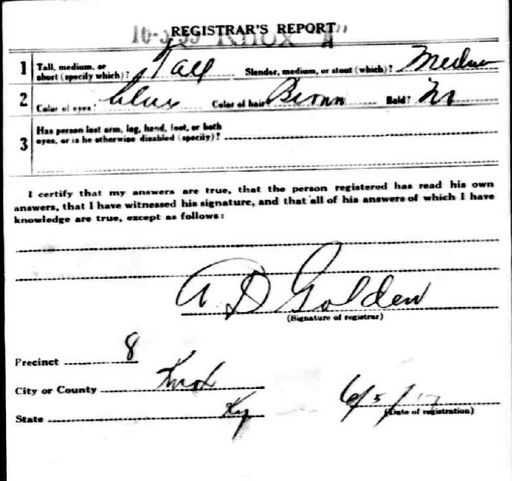 REGISTRAR'S REPORT
1 Tall, medium, or short (specify which)? Tall Slender, medium, or stout (which)? Medium
2 Color of eyes? blue Color of hair Brown Bald? No
3 Has person lost arm, leg, hand, foot, or both eyes, or is he otherwise disabled (specify)?
I certify that my answers are true, that the person registered has read his own
answers, that I have witnessed his signature, and that all of his answers of which I have
knowledge are true, except as follows:
A D Golden
(Signature of registrar)
Precinct 8
City or County Knox
State Ky 6/5/17
(Date of registration)